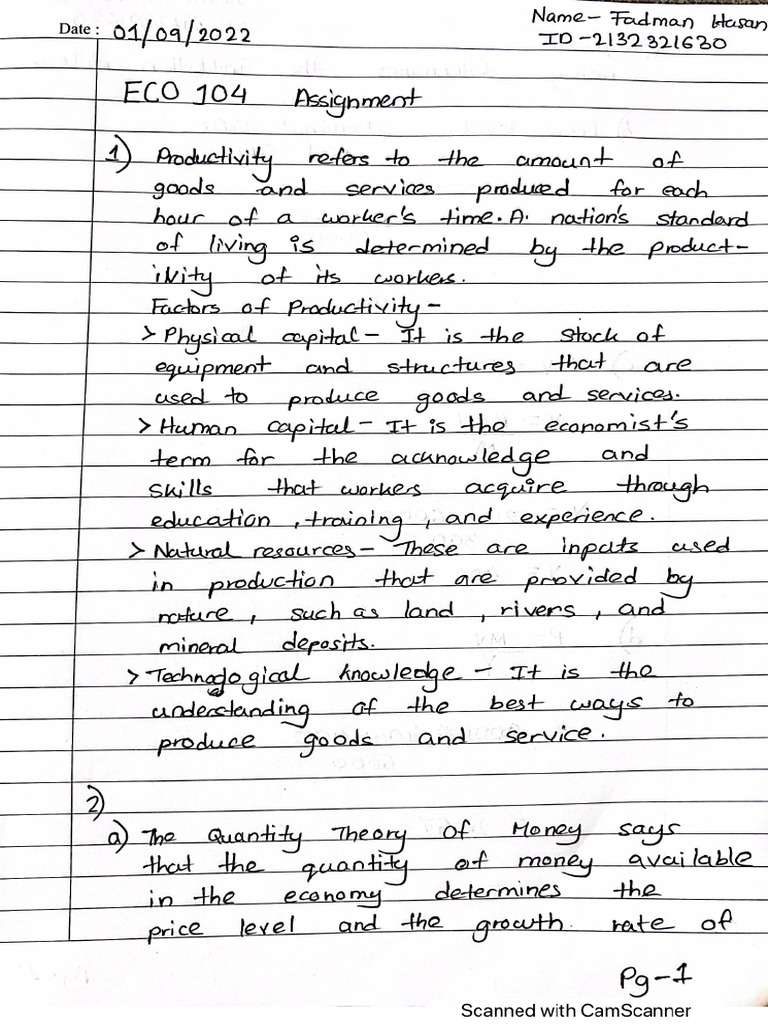 Name- Fadman Hasan
Date: 01/09/2022
ID-2132321630
ECO 104 Assignment
1) Productivity refers to the amount of
goods and services produced for each
hour of a worker's time. A nation's standard
of living is determined by the product-
ivity of its workers.
Factors of Productivity-
> Physical capital- It is the stock of
equipment and structures that are
used to produce goods and services.
> Human capital- It is the economist's
term for the acknowledge and
skills that workers acquire through
education, training, and experience.
> Natural resources- These are inputs used
in production that are provided by
nature, such as land, rivers, and
mineral deposits.
> Technological knowledge - It is the
understanding of the best ways to
produce goods and service.
2)
a) The Quantity Theory of Money says
that the quantity of money available
in the economy determines the
price level and the growth rate of
Pg-1
Scanned with CamScanner